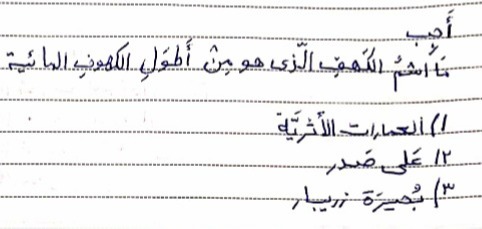 أَجِب
مَا اسْمُ الكَهفِ الَّذی هو مِنْ أَطوَلِ الکهوفِ المائیة
۱) العمارات الأَثریَّة
۲) عَلی صَدر
۳) بُحیرَة زریبار